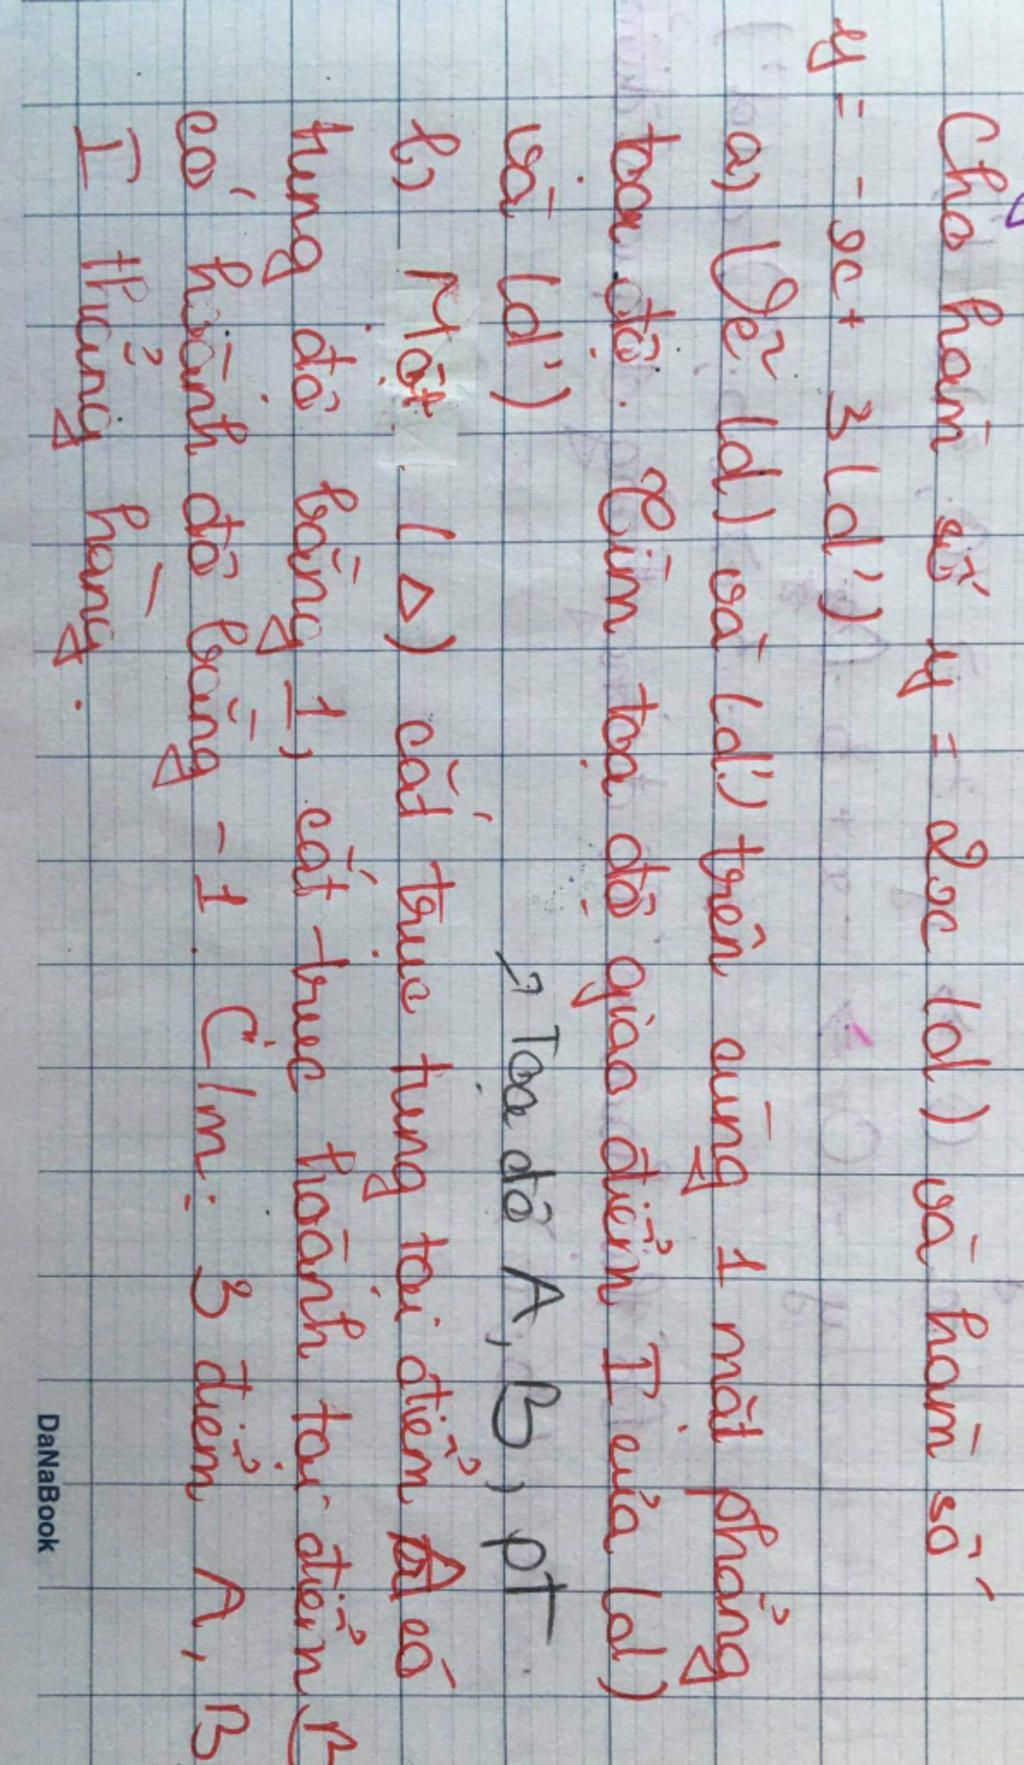 Cho hàm số y = 2x (d) và hàm số
y = -x + 3 (d')
a) Vẽ (d) và (d') trên cùng 1 mặt phẳng
toạ độ. Tìm toạ độ giao điểm I của (d)
và (d')
→ Toạ độ A, B, pT
b) Một (Δ) cắt trục tung tại điểm A có
tung độ bằng 1, cắt trục hoành tại điểm B
có hoành độ bằng -1. C/m: 3 điểm A, B
I thẳng hàng.
DaNaBook